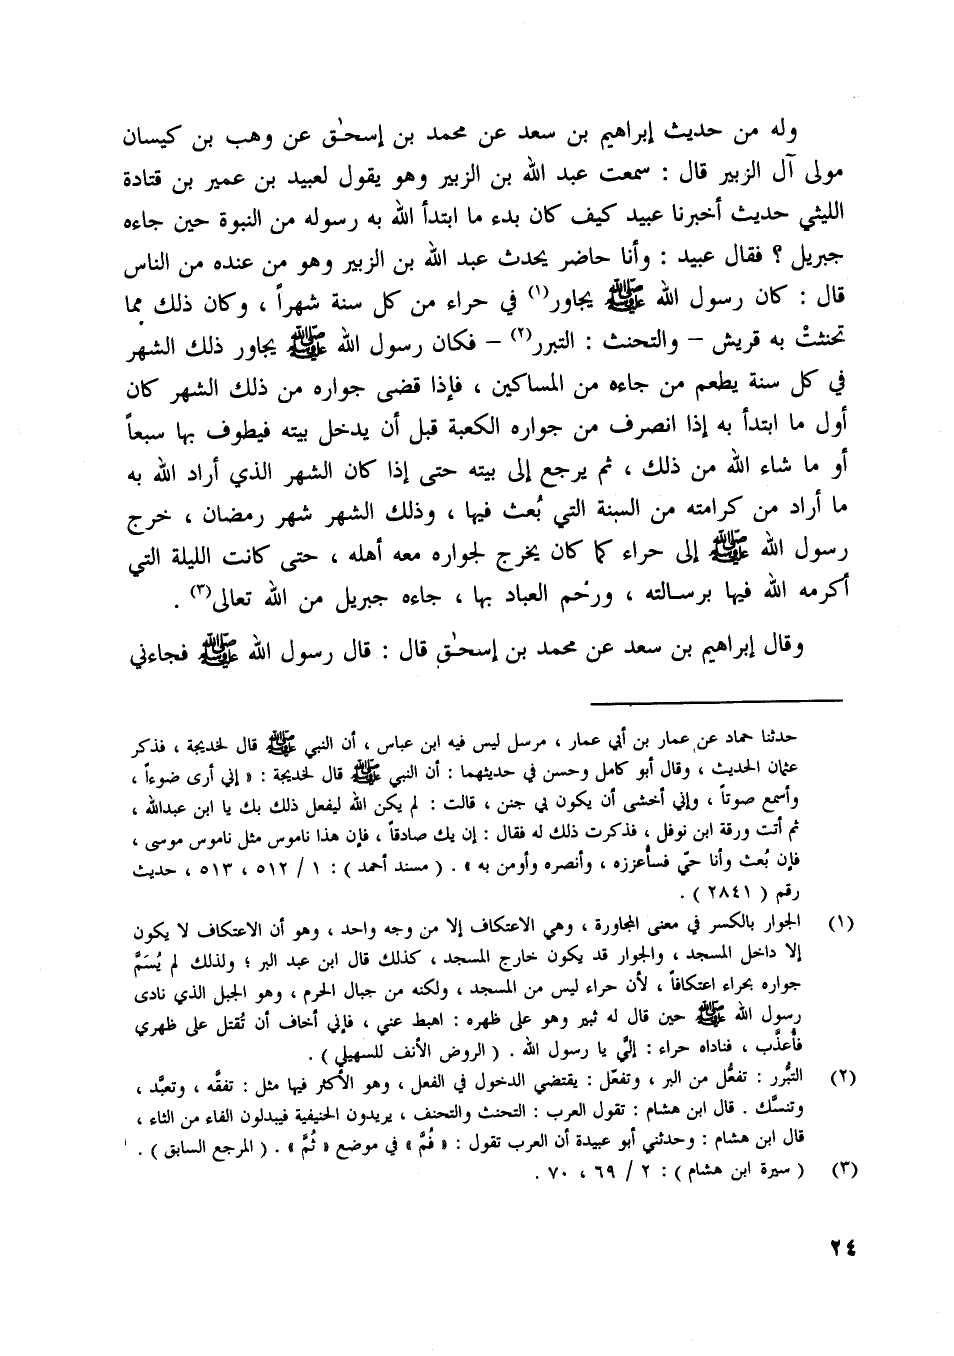 وله من حديث إبراهيم بن سعد عن محمد بن إسحٰق عن وهب بن كيسان
مولى آل الزبير قال : سمعت عبد الله بن الزبير وهو يقول لعبيد بن عمير بن قتادة
الليثي حديث أخبرنا عبيد كيف كان بدء ما ابتدأ الله به رسوله من النبوة حين جاءه
جبريل ؟ فقال عبيد : وأنا حاضر يحدث عبد الله بن الزبير وهو من عنده من الناس
قال : كان رسول الله ﷺ يجاور(١) في حراء من كل سنة شهراً ، وكان ذلك مما
تحنثتْ به قريش – والتحنث : التبرر(٢) – فكان رسول الله ﷺ يجاور ذلك الشهر
في كل سنة يطعم من جاءه من المساكين ، فإذا قضى جواره من ذلك الشهر كان
أول ما ابتدأ به إذا انصرف من جواره الكعبة قبل أن يدخل بيته فيطوف بها سبعاً
أو ما شاء الله من ذلك ، ثم يرجع إلى بيته حتى إذا كان الشهر الذي أراد الله به
ما أراد من كرامته من السنة التي بُعث فيها ، وذلك الشهر شهر رمضان ، خرج
رسول الله ﷺ إلى حراء كما كان يخرج لجواره معه أهله ، حتى كانت الليلة التي
أكرمه الله فيها برسالته ، ورحُم العباد بها ، جاءه جبريل من الله تعالى(٣) .
وقال إبراهيم بن سعد عن محمد بن إسحٰق قال : قال رسول الله ﷺ فجاءني
حدثنا حماد عن عمار بن أبي عمار ، مرسل ليس فيه ابن عباس ، أن النبي ﷺ قال لخديجة ، فذكر
عثمان الحديث ، وقال أبو كامل وحسن في حديثهما : أن النبي ﷺ قال لخديجة : « إني أرى ضوءاً ،
وأسمع صوتاً ، وإني أخشى أن يكون بي جنن ، قالت : لم يكن الله ليفعل ذلك بك يا ابن عبدالله ،
ثم أتت ورقة ابن نوفل ، فذكرت ذلك له فقال : إن يك صادقاً ، فإن هذا ناموس مثل ناموس موسى ،
فإن بُعث وأنا حيّ فسأُعززه ، وأنصره وأومن به » . ( مسند أحمد ) : ١ / ٥١٢ ، ٥١٣ ، حديث
رقم ( ٢٨٤١ ) .
(١) الجوار بالكسر في معنى المجاورة ، وهي الاعتكاف إلا من وجه واحد ، وهو أن الاعتكاف لا يكون
إلا داخل المسجد ، والجوار قد يكون خارج المسجد ، كذلك قال ابن عبد البر ؛ ولذلك لم يُسَمَّ
جواره بحراء اعتكافاً ، لأن حراء ليس من المسجد ، ولكنه من جبال الحرم ، وهو الجبل الذي نادى
رسول الله ﷺ حين قال له ثبير وهو على ظهره : اهبط عني ، فإني أخاف أن تُقتل على ظهري
فأُعذَّب ، فناداه حراء : إليَّ يا رسول الله . ( الروض الأنف للسهيلي ) .
(٢) التبُّرر : تفعُّل من البر ، وتفعّل : يقتضي الدخول في الفعل ، وهو الأكثر فيها مثل : تفقَّه ، وتعبَّد ،
وتنسَّك . قال ابن هشام : تقول العرب : التحنث والتحنف ، يريدون الحنيفية فيبدلون الفاء من الثاء ،
قال ابن هشام : وحدثني أبو عبيدة أن العرب تقول : « فُمَّ » في موضع « ثُمَّ » . ( المرجع السابق ) .
(٣) ( سيرة ابن هشام ) : ٢ / ٦٩ ، ٧٠ .
٢٤